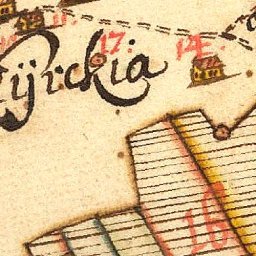 17. 14.
ijrckia
16